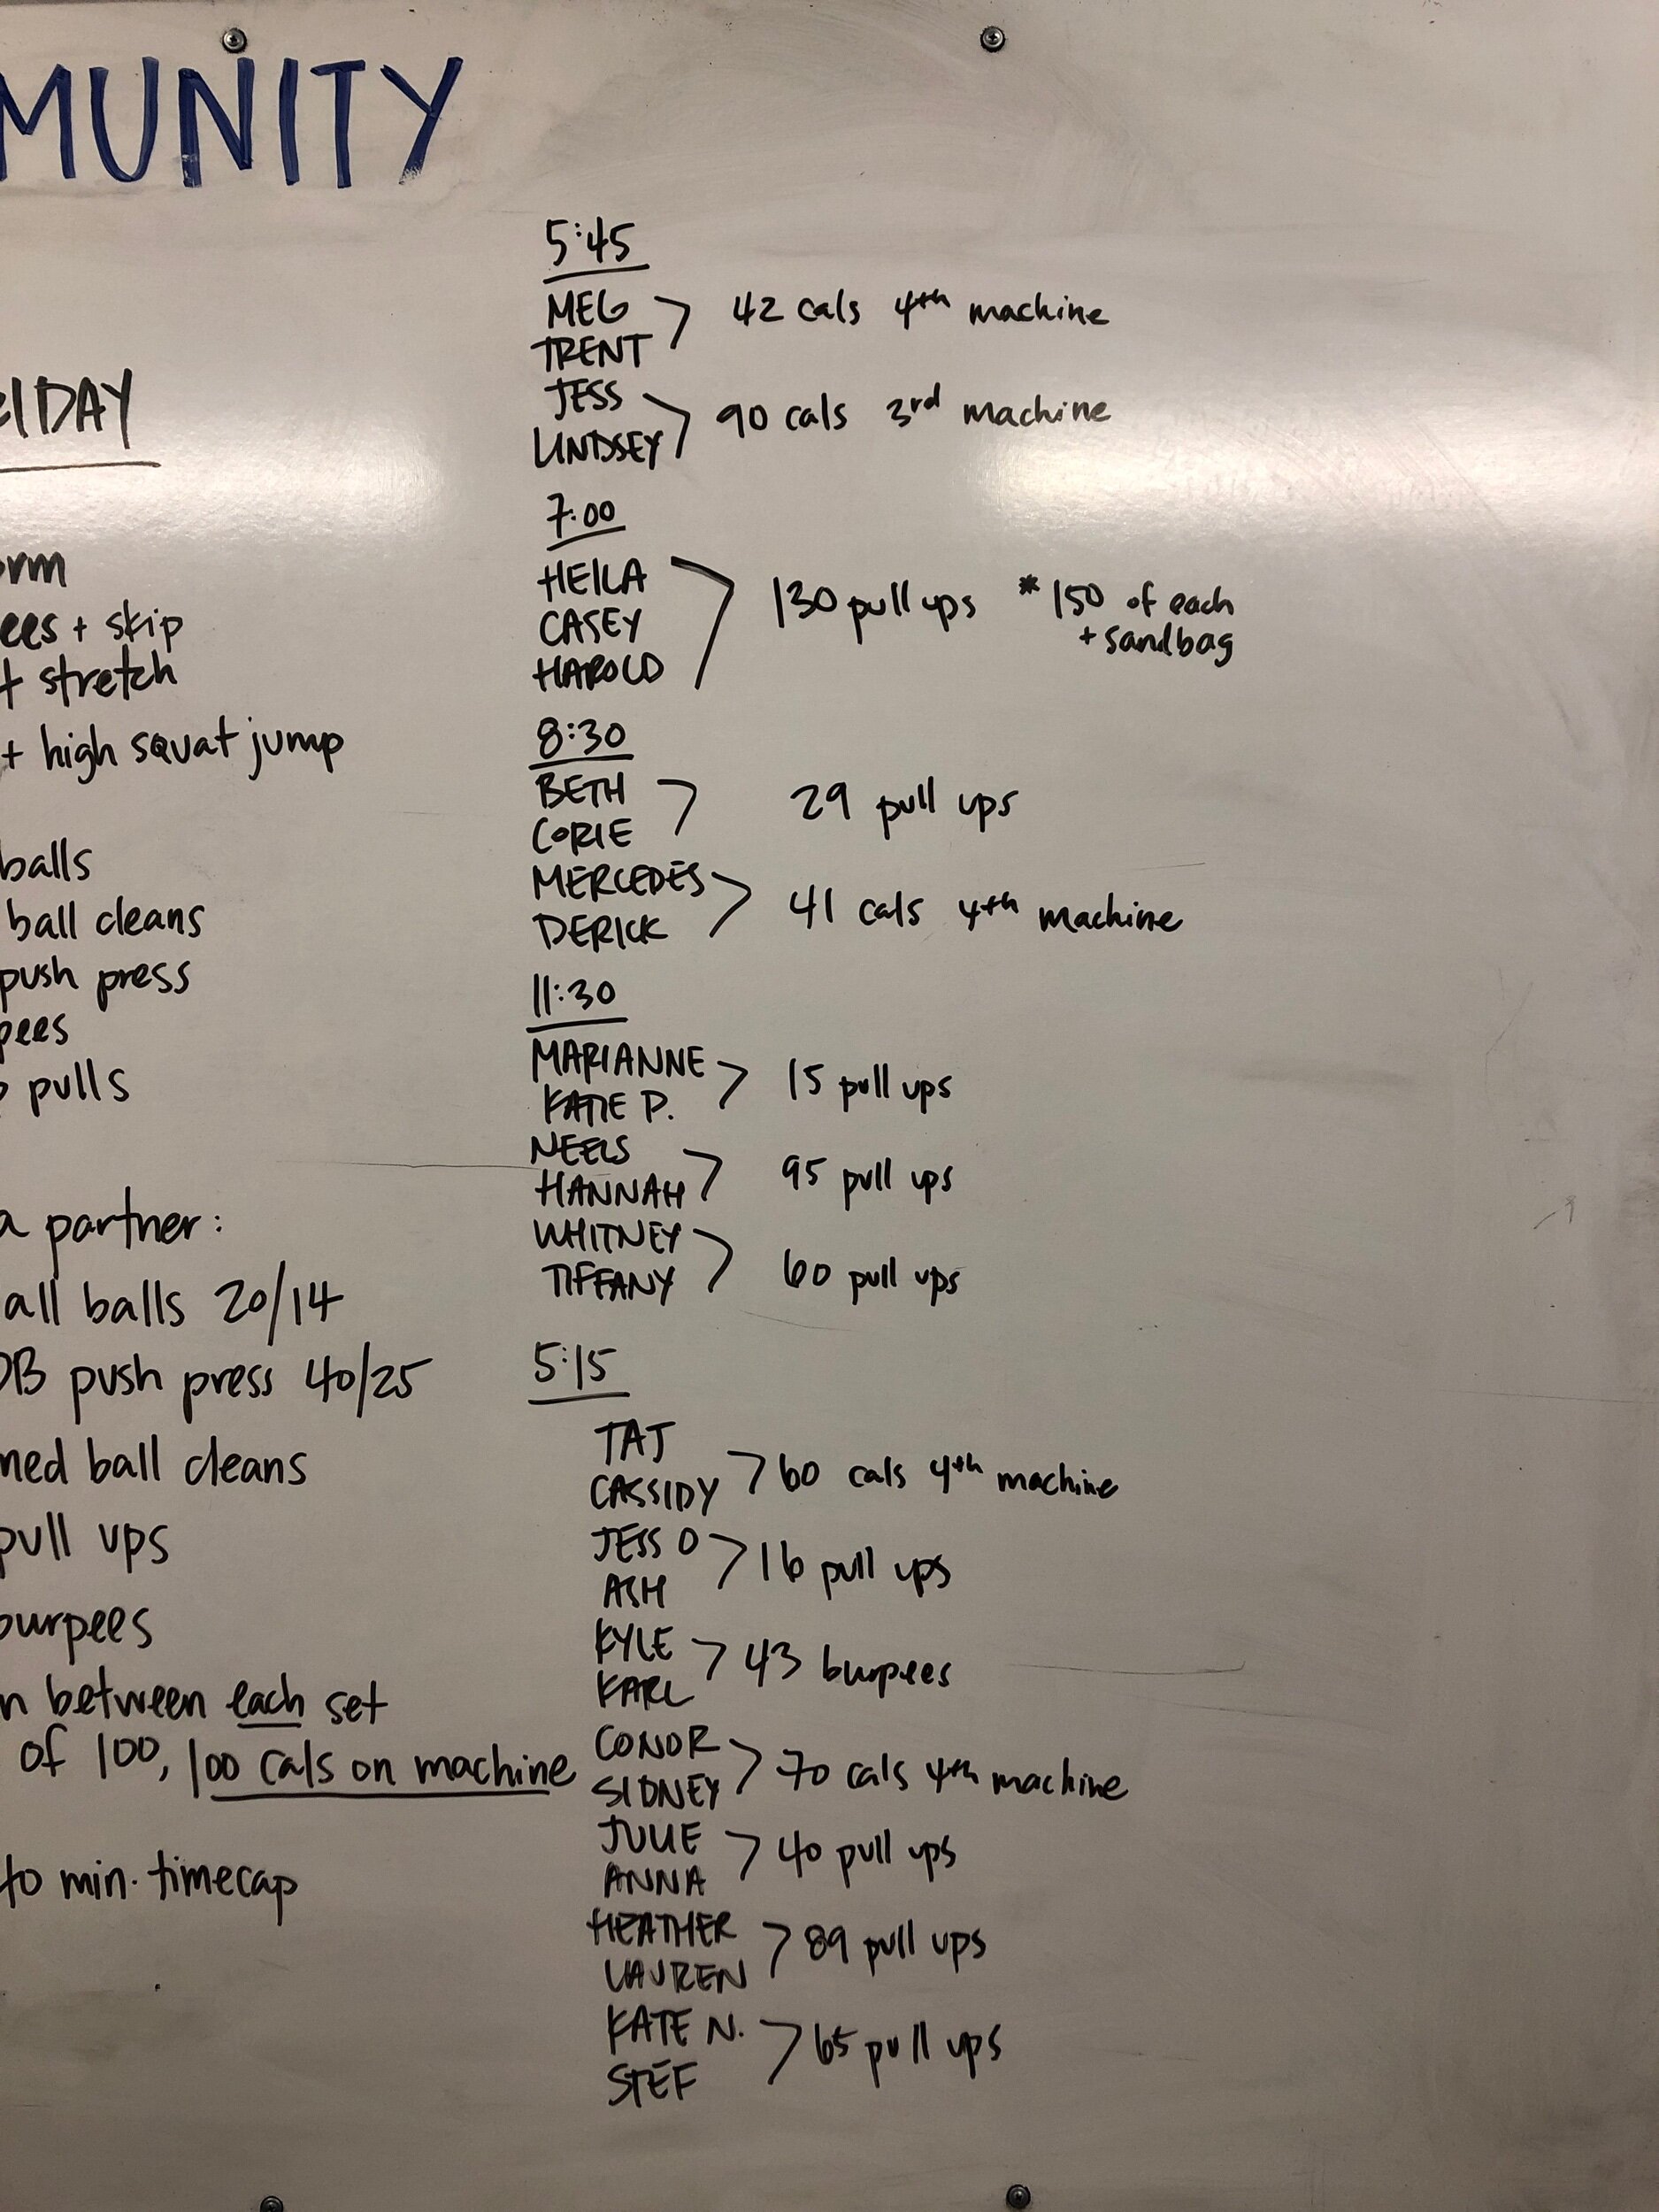 MUNITY
IDAY
orm
ees + skip
+ stretch
+ high squat jump
balls
ball cleans
push press
pees
pulls
a partner:
all balls 20/14
DB push press 40/25
ned ball cleans
pull ups
burpees
n between each set
of 100, 100 cals on machine
to min. timecap
5:45
MEG
TRENT
42 cals 4th machine
JESS
LINDSEY
90 cals 3rd machine
7:00
HEILA
CASEY
HAROLD
130 pull ups
* 150 of each
+ sandbag
8:30
BETH
CORIE
29 pull ups
MERCEDES
DERICK
41 cals 4th machine
11:30
MARIANNE
KATIE P.
15 pull ups
NEELS
HANNAH
95 pull ups
WHITNEY
TIFFANY
60 pull ups
5:15
TAJ
CASSIDY
60 cals 4th machine
JESS O
ASH
16 pull ups
KYLE
KARL
43 burpees
CONOR
SIDNEY
70 cals 4th machine
JULIE
ANNA
40 pull ups
HEATHER
LAUREN
89 pull ups
KATE N.
STEF
65 pull ups